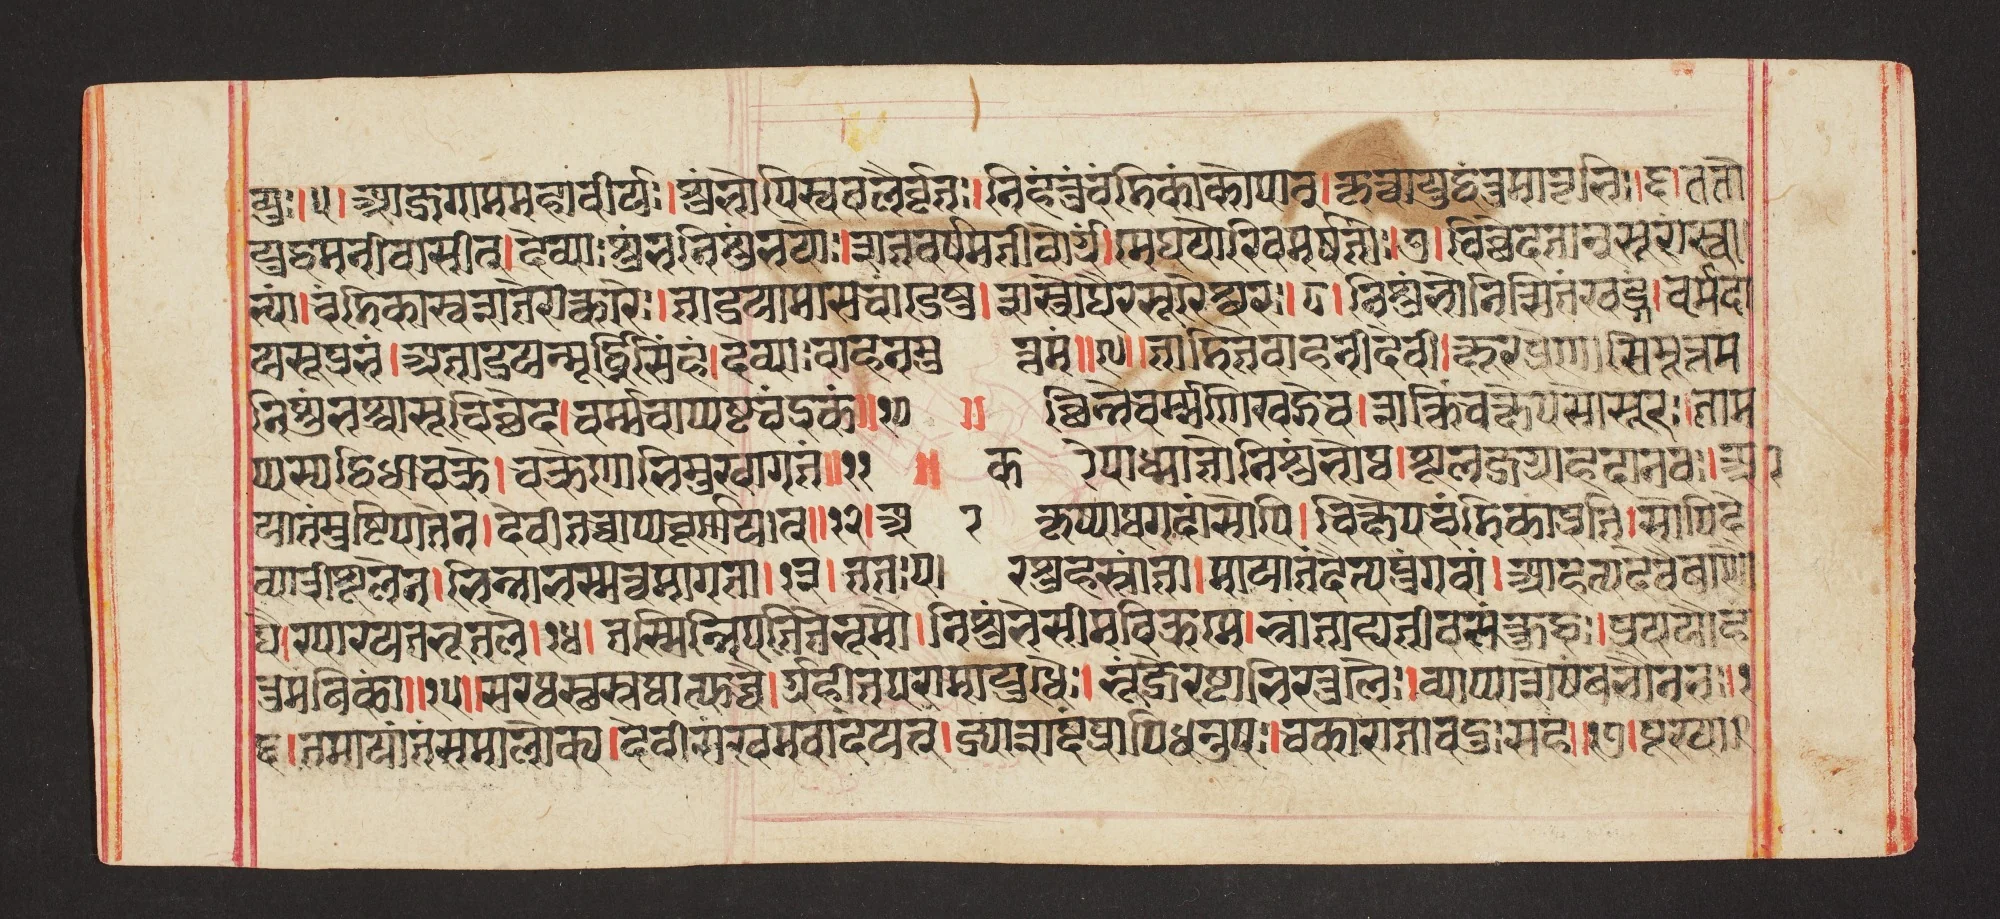 युः।५। आजगाममहावीर्यः।शुंभोपिस्वबलैर्वृतः।निहंतुंचंडिकांकोपात्।कृत्वायुद्धंतुमातृभिः।६।ततो
युद्धमतीवासीत्।देव्याःशुंभनिशुंभयोः।शरवर्षमतीवोग्रं।मेघयोरिववर्षतोः।७।चिच्छेदतानसूरांस्ता
भ्यां।चंडिकास्वशरोत्करैः।ताडयामासचांगेषु।शस्त्रौघैरसूरेश्वरः।८।निशुंभोनिशितंखड्गं।चर्मचादा
यसूप्रभं।अताडयन्मूर्द्ध्निसिंहं।देव्याःवाहनमुत्तमं॥९॥ताडितेवाहनेदेवी।क्षुरप्रेणासिमूत्तम
निशुंभस्याशूचिच्छेद।चर्मचाप्यष्टचंद्रकं॥१०॥च्छिन्नेचर्मणिखड्गेच।शक्तिंचिक्षेपसोसूरः।ताम
प्यस्यद्विधाचक्रे।चक्रेणाभिमुखागतं॥११॥कोपाध्मातोनिशुंभोथ।शूलंजग्राहदानवः।आ
यातंमुष्टिपातेन।देवीतच्चाप्यचूर्णयात्॥१२।अ क्षिप्याथगदांसोपि।चिक्षेपचंडिकांप्रति।सापिदे
व्यात्रीशूलेन।भिन्नाभस्मत्वमागता।१३।ततःप।रशुहस्तंतं।मायांतंदैत्यपुंगवं।आहत्यदेवीबाणौ
घै।रपातयतभूतले।१४।तस्मिन्निपतितेभूमौ।निशुंभेभीमविक्रमे।भ्रातर्यतीवसंक्रुद्धः।प्रययौहं
तुमंबिकां॥१५॥सरथस्थस्तथात्युच्चै।गृहीतपरमायुधैः।भूजैरष्टाभिरतुलैः।व्याप्याशेषंबभौनभः।१
६।तमायांतंसमालोक्य।देवीशंखमवादयत्।ज्याशब्दंचापिधनुषः।चकारातीवदुःसहं॥१७।पूरया